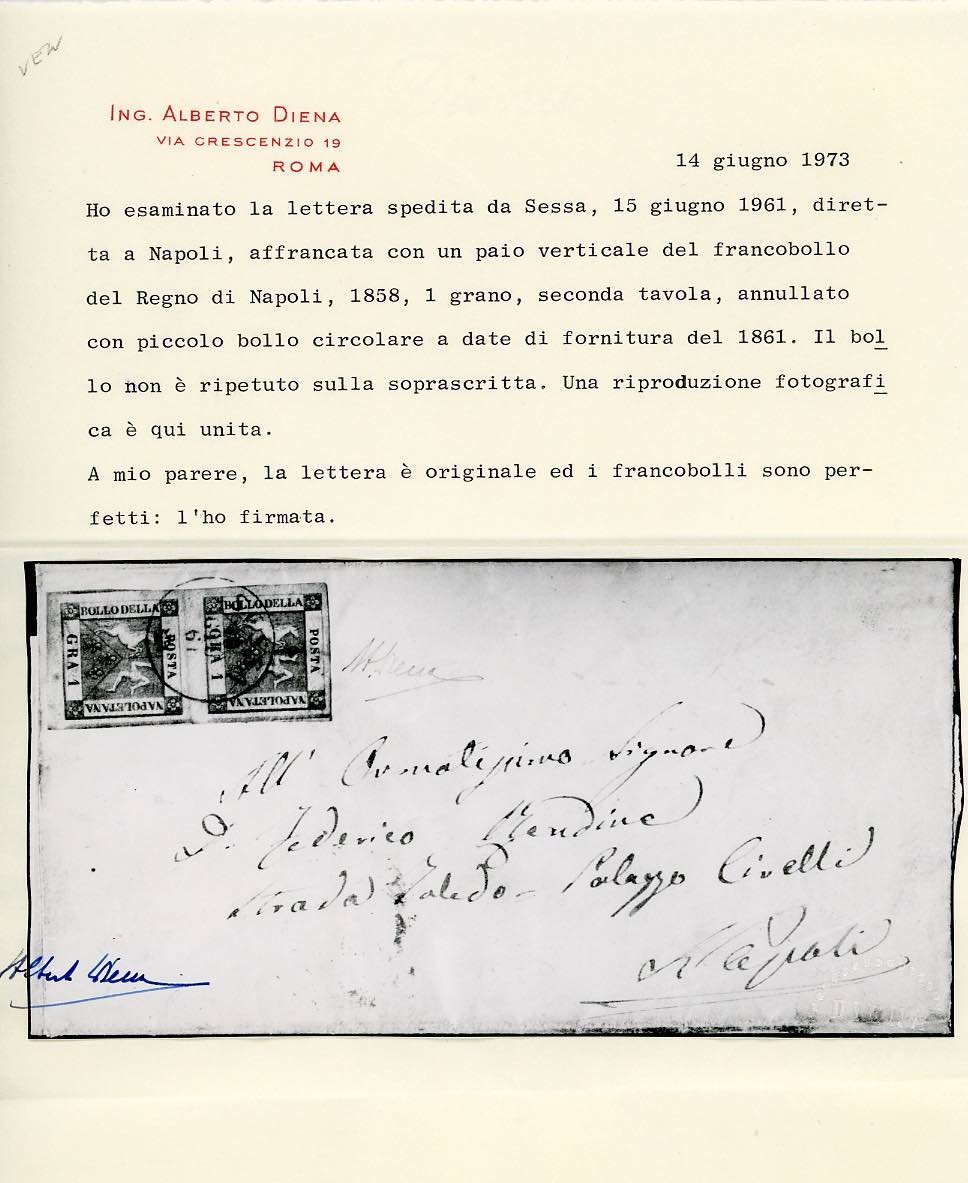 VEW
ING. ALBERTO DIENA
VIA CRESCENZIO 19
ROMA
14 giugno 1973
Ho esaminato la lettera spedita da Sessa, 15 giugno 1961, diret-
ta a Napoli, affrancata con un paio verticale del francobollo
del Regno di Napoli, 1858, 1 grano, seconda tavola, annullato
con piccolo bollo circolare a date di fornitura del 1861. Il bol
lo non è ripetuto sulla soprascritta. Una riproduzione fotografi
ca è qui unita.
A mio parere, la lettera è originale ed i francobolli sono per-
fetti: l'ho firmata.
BOLLO DELLA
POSTA
NAPOLETANA
GRA 1
BOLLO DELLA
POSTA
NAPOLETANA
GRA 1
61
All' Ornatissimo Signore
D. Federico Mendine
Strada Toledo - Palazzo Civelli
Napoli
Alberto Diena